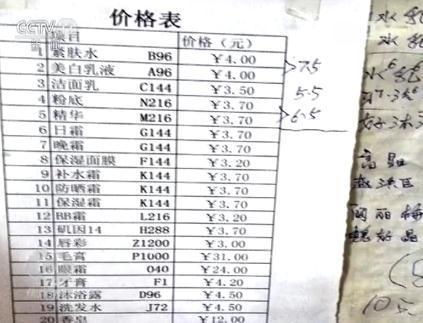 CCTV
价格表
项目 价格（元）
1 紧肤水 B96 ￥4.00
2 美白乳液 A96 ￥4.00
3 洁面乳 C144 ￥3.50
4 粉底 N216 ￥3.70
5 精华 M216 ￥3.70
6 日霜 G144 ￥3.70
7 晚霜 G144 ￥3.70
8 保湿面膜 F144 ￥3.20
9 补水霜 K144 ￥3.70
10 防晒霜 K144 ￥3.70
11 保湿霜 K144 ￥3.70
12 BB霜 L216 ￥3.20
13 矾因14 H288 ￥3.70
14 唇彩 Z1200 ￥3.00
15 毛膏 P1000 ￥31.00
16 眼霜 O40 ￥24.00
17 牙膏 F1 ￥4.20
18 沐浴露 D96 ￥4.50
19 洗发水 J72 ￥4.50
20 香皂 ￥12.00
7.5
5.5
6.5
水
水
高